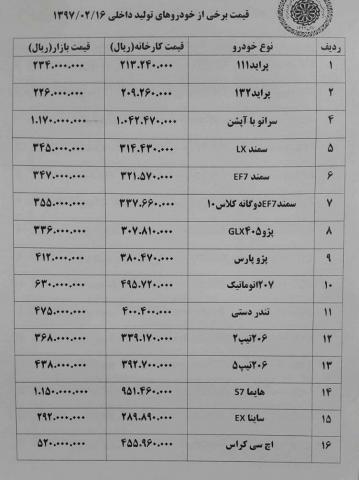 قیمت برخی از خودروهای تولید داخلی ۱۳۹۷/۰۲/۱۶
ردیف نوع خودرو قیمت کارخانه(ریال) قیمت بازار(ریال)
۱ پراید۱۱۱ ۲۱۳.۲۴۰.۰۰۰ ۲۳۴.۰۰۰.۰۰۰
۲ پراید۱۳۲ ۲۰۹.۲۶۰.۰۰۰ ۲۲۶.۰۰۰.۰۰۰
۴ سراتو با آپشن ۱.۰۴۲.۴۷۰.۰۰۰ ۱.۱۷۰.۰۰۰.۰۰۰
۵ سمند LX ۳۱۴.۴۳۰.۰۰۰ ۳۴۵.۰۰۰.۰۰۰
۶ سمند EF7 ۳۲۱.۵۷۰.۰۰۰ ۳۴۷.۰۰۰.۰۰۰
۷ سمندEF7دوگانه کلاس۱۰ ۳۳۷.۶۶۰.۰۰۰ ۳۵۵.۰۰۰.۰۰۰
۸ پژو۴۰۵GLX ۳۰۷.۸۱۰.۰۰۰ ۳۳۶.۰۰۰.۰۰۰
۹ پژو پارس ۳۸۰.۴۷۰.۰۰۰ ۴۱۲.۰۰۰.۰۰۰
۱۰ ۲۰۷اتوماتیک ۴۹۵.۷۲۰.۰۰۰ ۶۳۰.۰۰۰.۰۰۰
۱۱ تندر دستی ۴۰۰.۴۰۰.۰۰۰ ۴۷۵.۰۰۰.۰۰۰
۱۲ ۲۰۶تیپ۲ ۳۳۹.۱۷۰.۰۰۰ ۳۶۸.۰۰۰.۰۰۰
۱۳ ۲۰۶تیپ۵ ۳۹۲.۷۰۰.۰۰۰ ۴۳۸.۰۰۰.۰۰۰
۱۴ هایما S7 ۹۵۱.۴۶۰.۰۰۰ ۱.۱۵۰.۰۰۰.۰۰۰
۱۵ ساینا EX ۲۸۹.۸۹۰.۰۰۰ ۲۹۲.۰۰۰.۰۰۰
۱۶ اچ سی کراس ۴۵۵.۹۶۰.۰۰۰ ۵۲۰.۰۰۰.۰۰۰